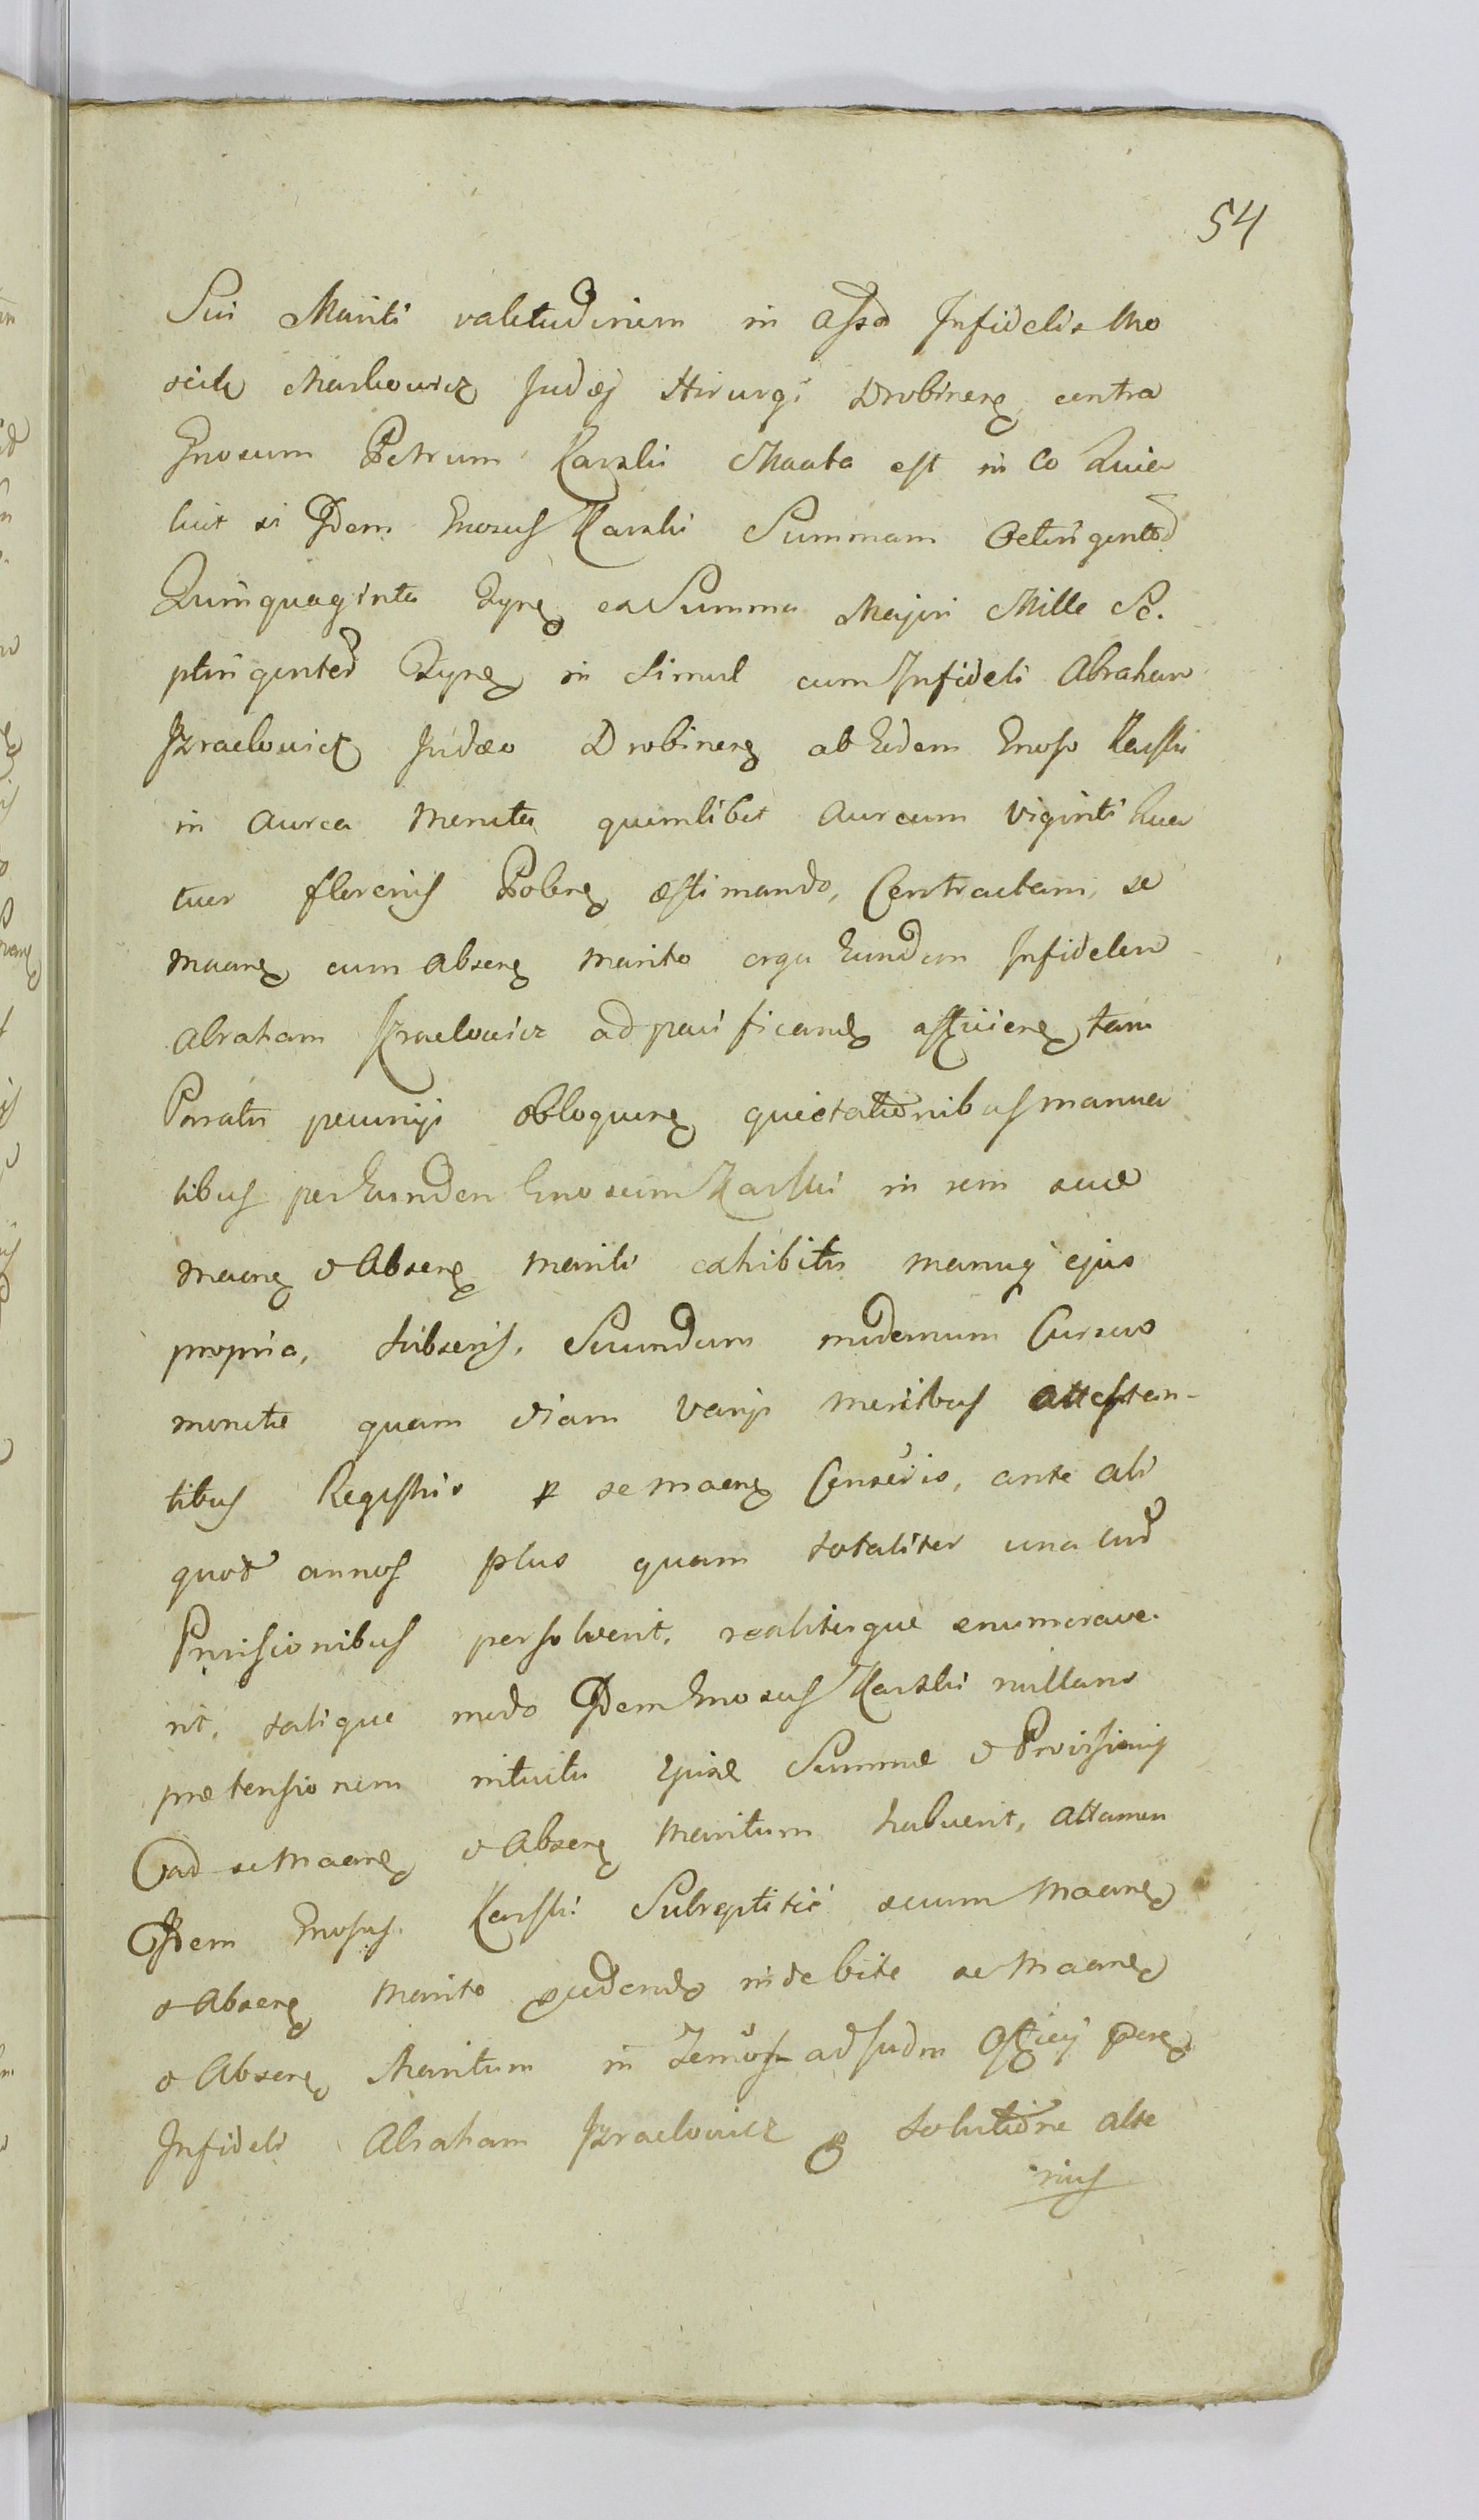 54
Sui Mariti valetudinem in assa Infidelis Mo
sick Markowicz Judæj Hirurgi Drobinen contra
Gnosum Petrum Karski Maata est in eo Quia
licet ei Idem Gnosus Karski Summam Octingentor
Quinquaginta ex Summa Majori Mille Se-
ptingentor in simul cum Infideli Abraham
Izraelowicz Judæo Drobinen ab Eodem Gnoso Karski
in aurea moneta quemlibet aureum viginti Qua
tuor florenis Polon æstimando, Contractam, se
maan cum absen marito erga Eundem Infidelem
Abraham Izraelowicz ad pacificand tam
Paratis pecunijs obloquen quietationibus manua
libus per Eundem Gnosum Karski in rem suæ
maan & Absen mariti exhibitis manus ejus
propria, subscris, Secundum modernum Cursus
monetæ quam etiam varijs mercibus attestan-
tibus Registris p se maan Conscris, ante ali
quot annos plus quam totaliter una cum
Provisionibus persolverit, realiterque enumerave-
rit, talique modo Idem Gnosus Karski nullam
prætensionem intuitu ejusd Summæ & Provisionis
ad se Maan & Absen Maritum habuerit, attamen
Idem Gnosus Karski Subreptitie secum Maan
& Absen Marito indebite se Maan
& Absen Maritum in ad Judm
Infideli Abraham Izraelowicz p solutione alte
rius